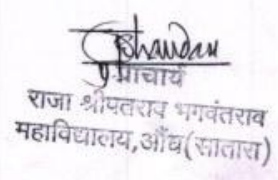 प्राचार्य
राजा श्रीपतराव भगवंतराव
महाविद्यालय,औंध(सातारा)